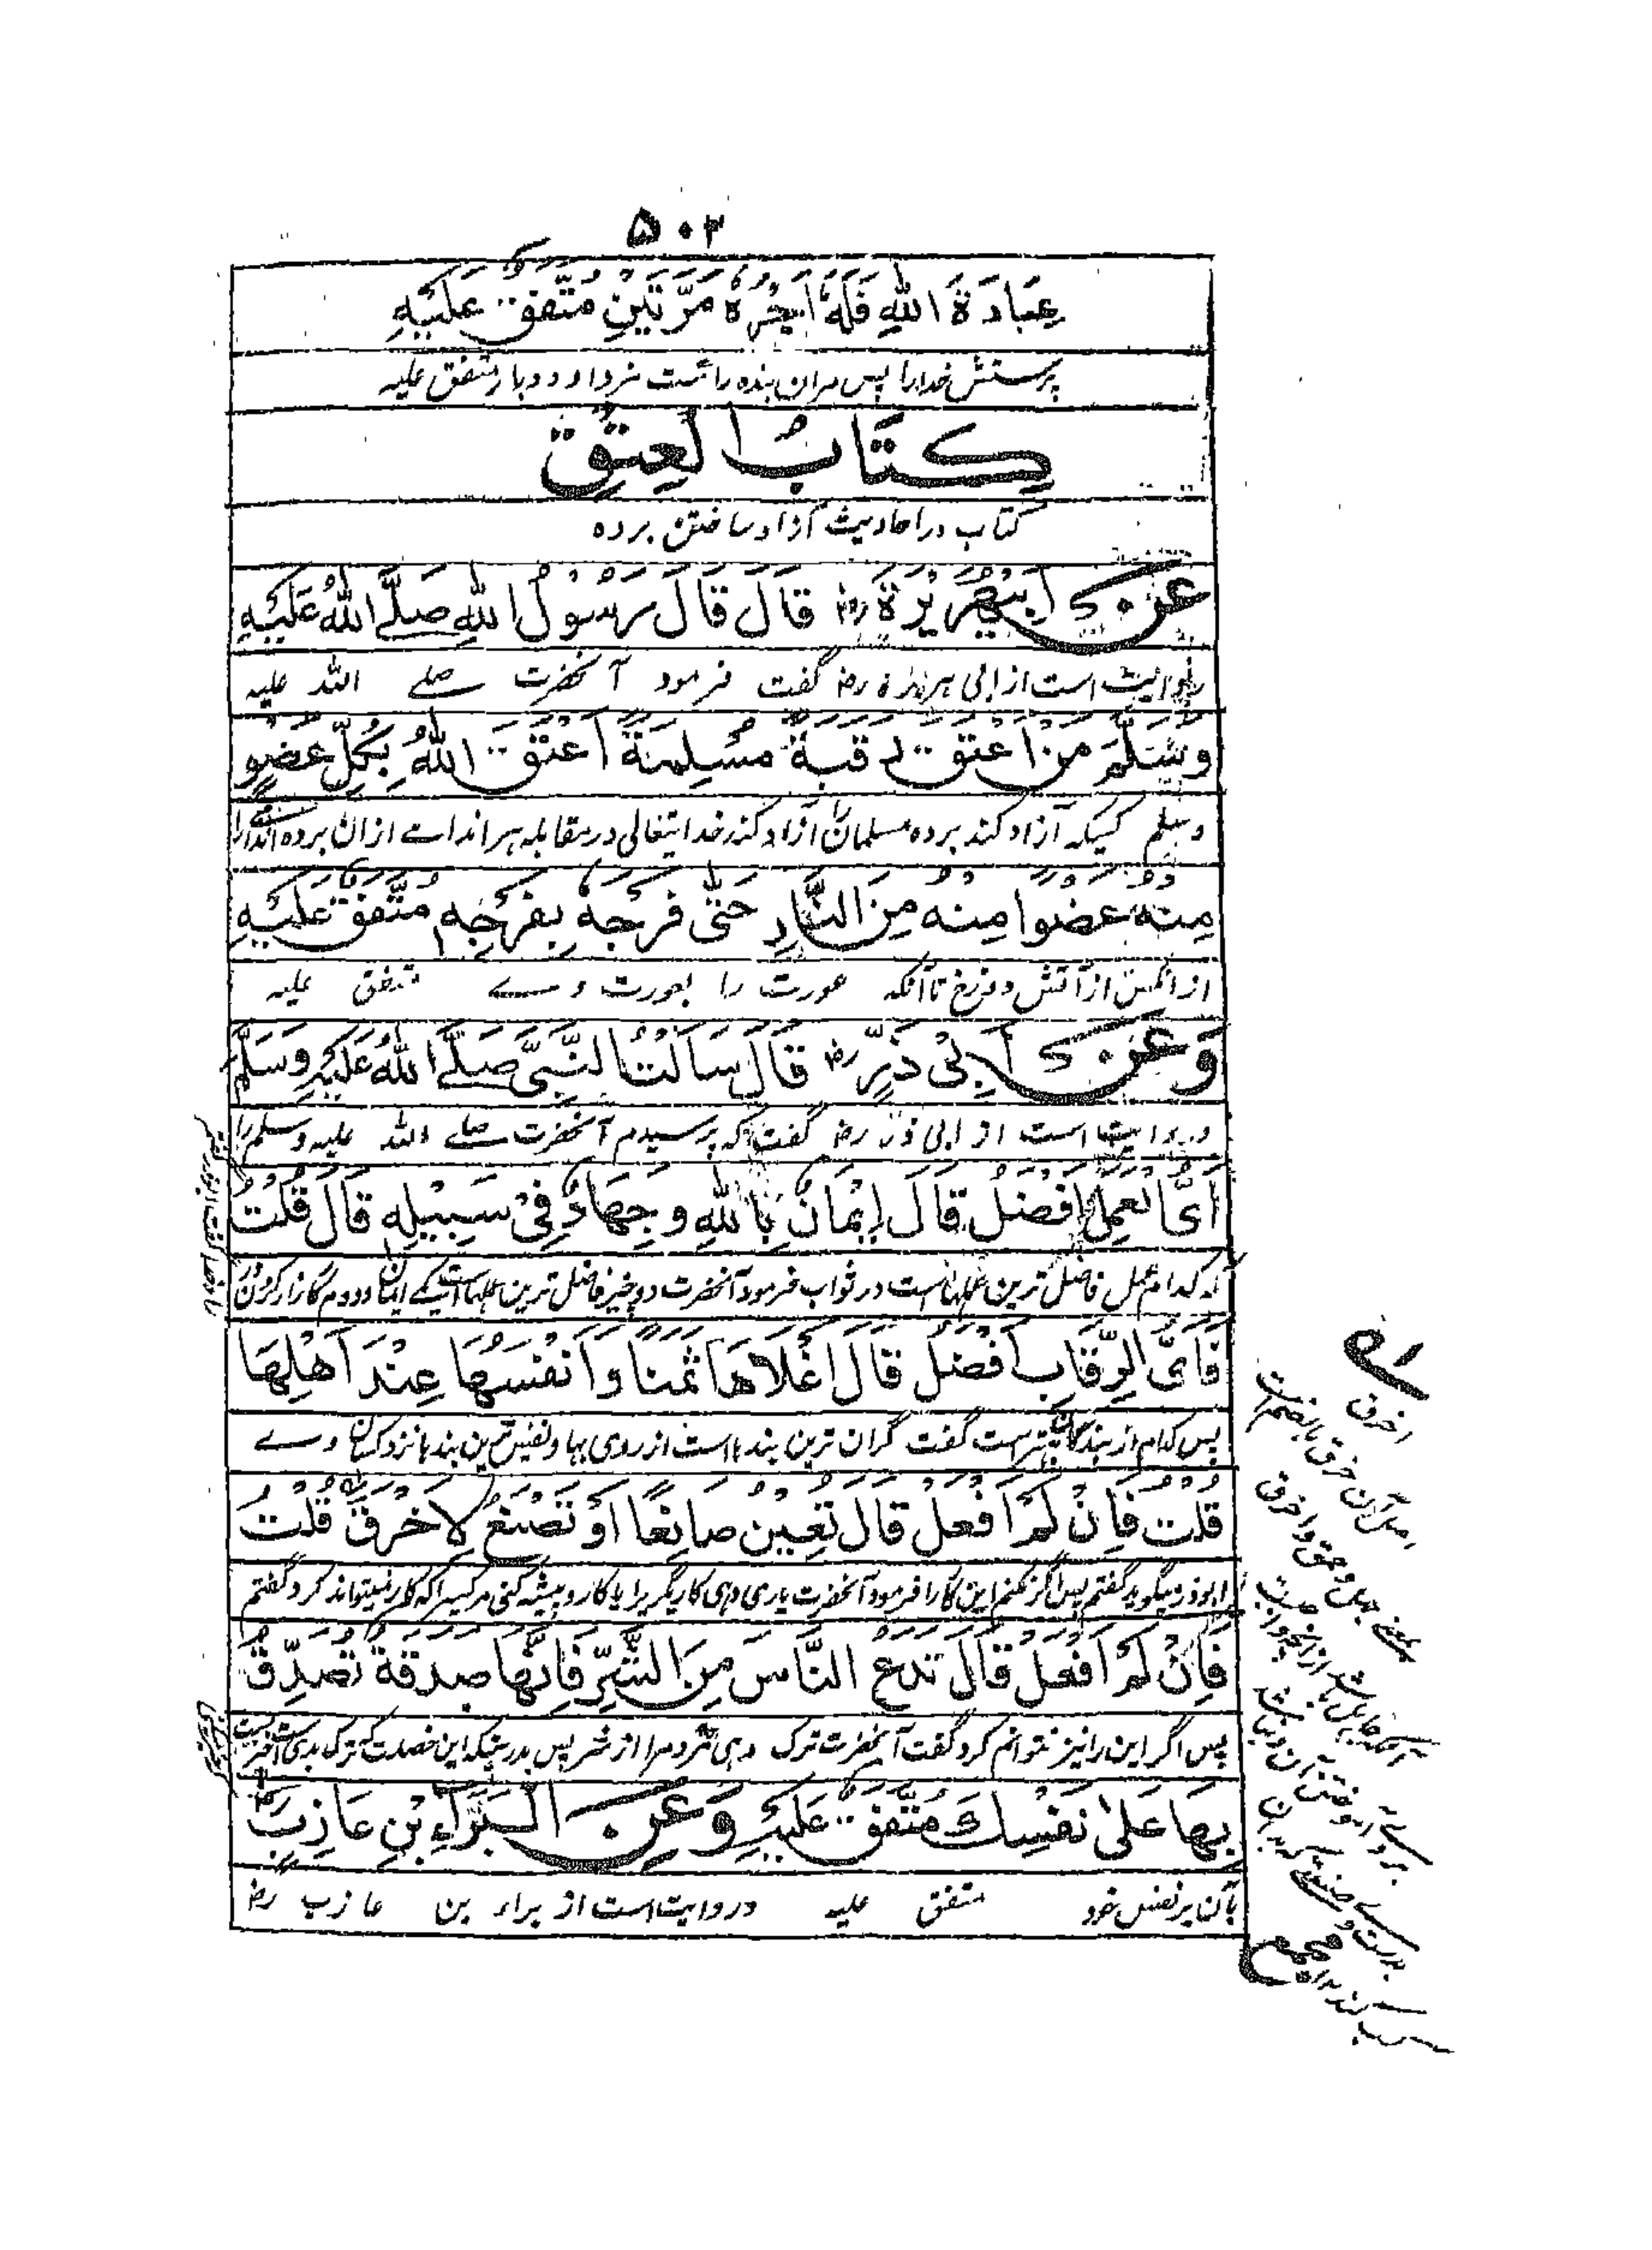 ۵۰۲
عِبَادَةَ اللهِ فَلَهُ اَجْرُهُ مَرَّتَيْنِ مُتَّفَقٌ عَلَيْهِ
پرستش خدارا پس مران بنده راست مزد او دو بار متفق علیه
كِتَابُ الْعِتْقِ
کتاب در احادیث آزاد ساختن برده
عَنْ اَبِيْ هُرَيْرَةَ رض قَالَ قَالَ رَسُوْلُ اللهِ صَلَّے اللهُ عَلَيْهِ
روایت است از ابی هریره رض گفت فرمود آنحضرت صلے الله علیه
وَسَلَّمَ مَنْ اَعْتَقَ رَقَبَةً مُسْلِمَةً اَعْتَقَ اللهُ بِكُلِّ عُضْوٍ
وسلم کسیکه آزاد کند برده مسلمان را آزاد کند خدایتعالی در مقابله هر اندامے ازان برده
مِنْهُ عُضْوًا مِنْهُ مِنَ النَّارِ حَتّٰى فَرْجَهُ بِفَرْجِهِ مُتَّفَقٌ عَلَيْهِ
از آتش دوزخ تا آنکه عورت را بعورت وے متفق علیه
وَعَنْ اَبِيْ ذَرٍّ رض قَالَ سَاَلْتُ النَّبِيَّ صَلَّے اللهُ عَلَيْهِ وَسَلَّمَ
و روایت است از ابی ذر رض گفت که پرسیدم آنحضرت صلے الله علیه وسلم را
اَىُّ الْعَمَلِ اَفْضَلُ قَالَ اِيْمَانٌ بِاللهِ وَجِهَادٌ فِيْ سَبِيْلِهِ قَالَ قُلْتُ
که کدام عمل فاضل ترین عملهاست در ثواب فرمود آنحضرت دو چیز فاضل ترین عملهاست یکے ایمان و دوم کارزار کردن
فَاَىُّ الرِّقَابِ اَفْضَلُ قَالَ اَغْلَاهَا ثَمَنًا وَاَنْفَسُهَا عِنْدَ اَهْلِهَا
پس کدام از بندگان بهترست گفت گران ترین بندها است از روی بها و نفیس ترین بندها نزد کسان وے
قُلْتُ فَاِنْ لَمْ اَفْعَلْ قَالَ تُعِيْنُ صَانِعًا اَوْ تَصْنَعُ لِاَخْرَقَ قُلْتُ
ابوذر میگوید گفتم پس اگر نکنم این کار را فرمود آنحضرت یاری دهی کاریگر یرا یا کار و پیشه کنی مر کسیرا که کار نمیتواند کرد گفتم
فَاِنْ لَمْ اَفْعَلْ قَالَ تَدَعُ النَّاسَ مِنَ الشَّرِّ فَاِنَّهَا صَدَقَةٌ تَصَدَّقُ
پس اگر این را نیز نتوانم کرد گفت آنحضرت ترک دهی مردم را از شر پس بدرستیکه این خصلت که ترک بدی است
بِهَا عَلٰى نَفْسِكَ مُتَّفَقٌ عَلَيْهِ وَعَنِ الْبَرَّاءِ بْنِ عَازِبٍ رض
بآن بر نفس خود متفق علیه و روایت است از براء بن عازب رض